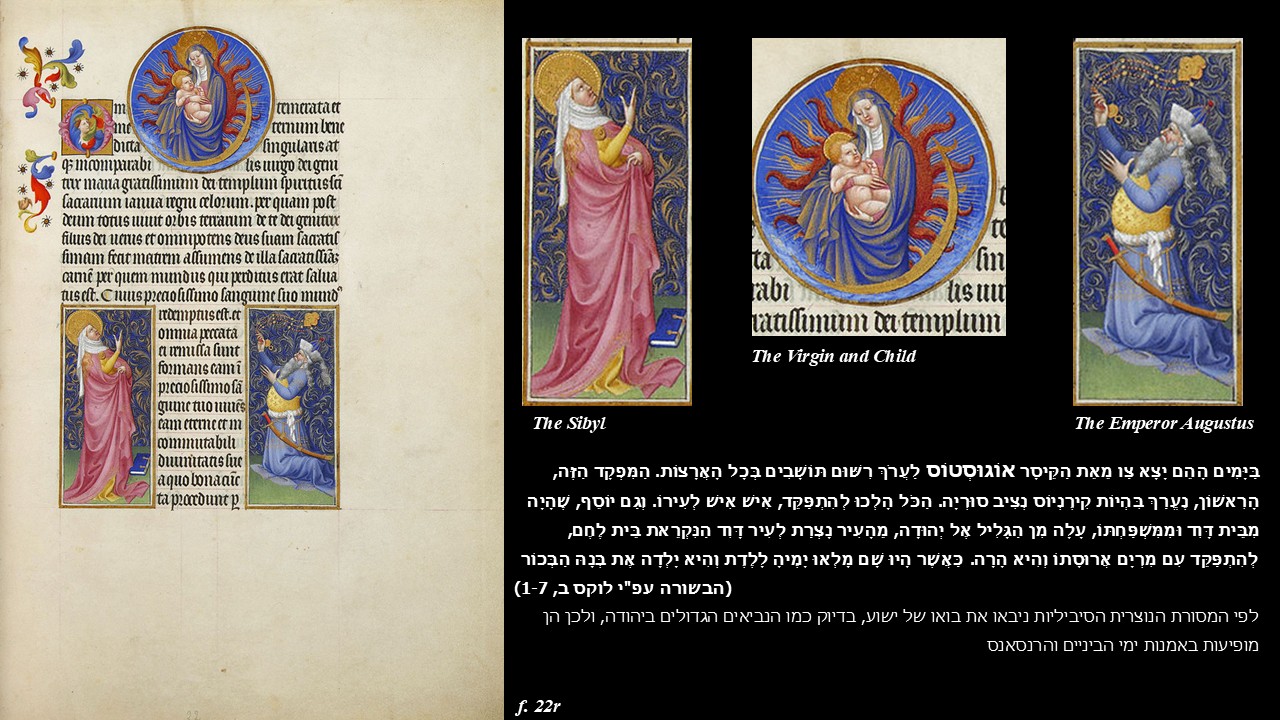 m temerata et
me ternum bene
dicta singularis at
q̄ incomparabi lis uirgo dei geni
trix maria gratissimum dei templum spiritus scī
sacrarium ianua regni celorum. per quam post
deum totus uiuit orbis terrarum de te dei genitrix
filius dei uerus et omnipotens deus suam sacratis
simam fecit matrem assumens de illa sacratissimā
carnē per quem mundus qui perditus erat salua
tus est. Cuius preciosissimo sanguine suo mundꝰ
redemptus est. et
omnia peccata
ei remissa sunt
preciosissimo sā
commutabili
diuinitatis sue
a quo bona cūc
ta procedunt p
The Sibyl
The Virgin and Child
The Emperor Augustus
בַּיָּמִים הָהֵם יָצָא צַו מֵאֵת הַקֵּיסָר אוֹגוּסְטוֹס לַעֲרֹךְ רִשּׁוּם תּוֹשָׁבִים בְּכָל הָאֲרָצוֹת. הַמִּפְקָד הַזֶּה,
הָרִאשׁוֹן, נֶעֱרַךְ בִּהְיוֹת קִירֶנְיוֹס נְצִיב סוּרְיָה. הַכֹּל הָלְכוּ לְהִתְפַּקֵּד, אִישׁ אִישׁ לְעִירוֹ. וְגַם יוֹסֵף, שֶׁהָיָה
מִבֵּית דָּוִד וּמִמִּשְׁפַּחְתּוֹ, עָלָה מִן הַגָּלִיל אֶל יְהוּדָה, מֵהָעִיר נָצְרַת לְעִיר דָּוִד הַנִּקְרֵאת בֵּית לֶחֶם,
לְהִתְפַּקֵּד עִם מִרְיָם אֲרוּסָתוֹ וְהִיא הָרָה. כַּאֲשֶׁר הָיוּ שָׁם מָלְאוּ יָמֶיהָ לָלֶדֶת וְהִיא יָלְדָה אֶת בְּנָהּ הַבְּכוֹר
(הבשורה עפ"י לוקס ב, 1-7)
לפי המסורת הנוצרית הסיביליות ניבאו את בואו של ישוע, בדיוק כמו הנביאים הגדולים ביהודה, ולכן הן
מופיעות באמנות ימי הביניים והרנסאנס
f. 22r